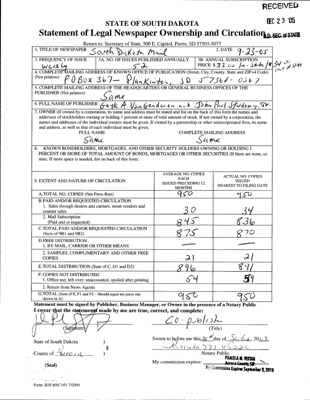 RECEIVED
DEC 23 05
S.D. SEC. OF STATE
STATE OF SOUTH DAKOTA
Statement of Legal Newspaper Ownership and Circulation
Return to: Secretary of State, 500 E. Capitol, Pierre, SD 57501-5077
1. TITLE OF NEWSPAPER South Dakota Mail
2. DATE 9-23-05
3. FREQUENCY OF ISSUE Weekly
3A. NO. OF ISSUES PUBLISHED ANNUALLY 52
3B. ANNUAL SUBSCRIPTION PRICE
4. COMPLETE MAILING ADDRESS OF KNOWN OFFICE OF PUBLICATION (Street, City, County, State and ZIP+4 Code)
(Not printers) PO Box 367 - Plankinton, SD 57368-0367
5. COMPLETE MAILING ADDRESS OF THE HEADQUARTERS OR GENERAL BUSINESS OFFICES OF THE
PUBLISHER (Not printers) Same
6. FULL NAME OF PUBLISHER:
7. OWNER (If owned by a corporation, its name and address must be stated and also the name and
addresses of stockholders owning or holding 1 percent or more of total amount of stock. If not owned by a corporation, the
names and addresses of the individual owners must be given. If owned by a partnership or other unincorporated firm, its name
and address, as well as that of each individual must be given.
FULL NAME
COMPLETE MAILING ADDRESS
Same
Same
8. KNOWN BONDHOLDERS, MORTGAGES, AND OTHER SECURITY HOLDERS OWNING OR HOLDING 1
PERCENT OR MORE OF TOTAL AMOUNT OF BONDS, MORTGAGES OR OTHER SECURITIES (If there are none, so
state. If more space is needed, list on back of this form.
9. EXTENT AND NATURE OF CIRCULATION
AVERAGE NO. COPIES EACH ISSUED PRECEDING 12 MONTHS
ACTUAL NO. COPIES ISSUED NEAREST TO FILING DATE
A. TOTAL NO. COPIES (Net Press Run) 950 950
B. PAID AND/OR REQUESTED CIRCULATION
1. Sales through dealers and carriers, street vendors and
counter sales. 30 34
2. Mail Subscription
(Paid and or requested) 845 836
C. TOTAL PAID AND/OR REQUESTED CIRCULATION
(Sum of 9B1 and 9B2) 875 870
D. FREE DISTRIBUTION
1. BY MAIL, CARRIER OR OTHER MEANS
2. SAMPLES, COMPLIMENTARY AND OTHER FREE
COPIES 21 21
E. TOTAL DISTRIBUTION (Sum of C, D1 and D2) 896 891
F. COPIES NOT DISTRIBUTED
1. Office use, left over, unaccounted, spoiled after printing 54 59
2. Return from News Agents
G. TOTAL (Sum of E, F1 and F2 - Should equal net press run
shown in A) 950 950
Statement must be signed by Publisher, Business Manager, or Owner in the presence of a Notary Public
I swear that the statements made by me are true, correct, and complete:
(Signature)
Co-publish
(Title)
State of South Dakota )
County of Aurora )
(Seal)
Sworn to before me this
Notary Public
My commission expires:
PAMELA M. VISSIA
Aurora County, SD
My Commission Expires September 9, 2010
Form: SOS REC 051 7/2004